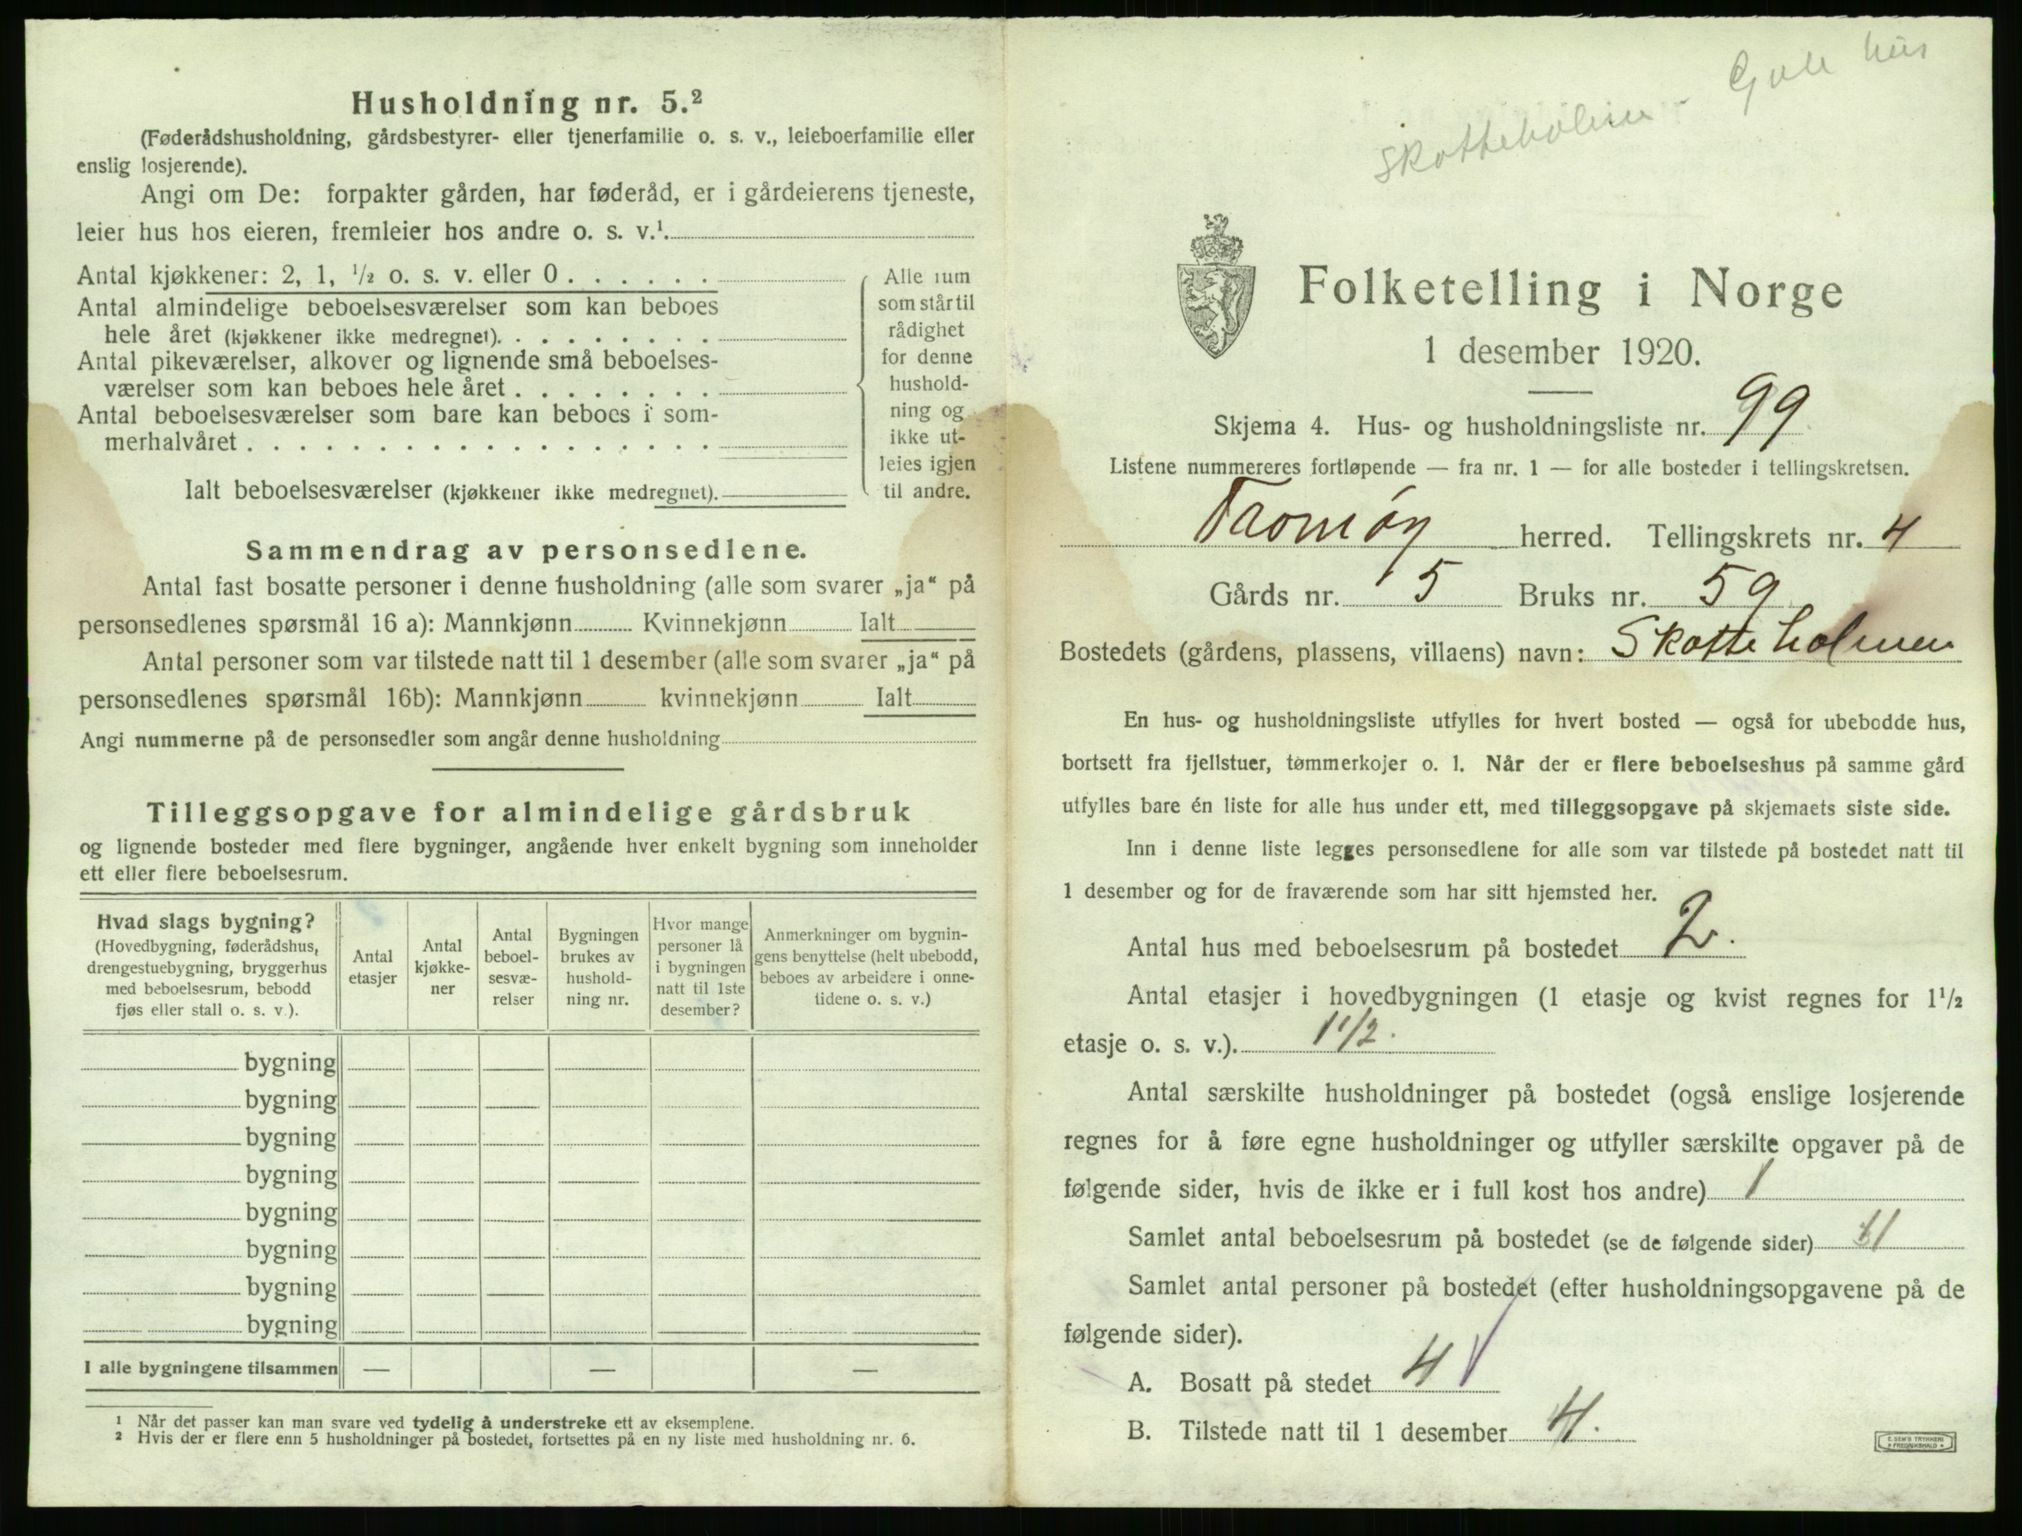 Husholdning nr. 5.²
(Føderådshusholdning, gårdsbestyrer- eller tjenerfamilie o. s. v., leieboerfamilie eller
enslig losjerende).
Angi om De: forpakter gården, har føderåd, er i gårdeierens tjeneste,
leier hus hos eieren, fremleier hos andre o. s. v.¹.
Antal kjøkkener: 2, 1, ¹/₂ o. s. v. eller 0 . . . . . .
Antal almindelige beboelsesværelser som kan beboes
hele året (kjøkkener ikke medregnet). . . . . . . . .
Antal pikeværelser, alkover og lignende små beboelses-
værelser som kan beboes hele året . . . . . . . .
Antal beboelsesværelser som bare kan beboes i som-
merhalvåret . . . . . . . . . . . . . . . . . .
Ialt beboelsesværelser (kjøkkener ikke medregnet).
Alle rum
som står til
rådighet
for denne
hushold-
ning og
ikke ut-
leies igjen
til andre.
Sammendrag av personsedlene.
Antal fast bosatte personer i denne husholdning (alle som svarer „ja“ på
personsedlenes spørsmål 16 a): Mannkjønn Kvinnekjønn Ialt
Antal personer som var tilstede natt til 1 desember (alle som svarer „ja“ på
personsedlenes spørsmål 16b): Mannkjønn kvinnekjønn Ialt
Angi nummerne på de personsedler som angår denne husholdning
Tilleggsopgave for almindelige gårdsbruk
og lignende bosteder med flere bygninger, angående hver enkelt bygning som inneholder
ett eller flere beboelsesrum.
Hvad slags bygning?
(Hovedbygning, føderådshus,
drengestuebygning, bryggerhus
med beboelsesrum, bebodd
fjøs eller stall o. s. v.).
Antal
etasjer
Antal
kjøkke-
ner
Antal
beboel-
sesvæ-
relser
Bygningen
brukes av
hushold-
ning nr.
Hvor mange
personer lå
i bygningen
natt til 1ste
desember?
Anmerkninger om bygnin-
gens benyttelse (helt ubebodd,
beboes av arbeidere i onne-
tidene o. s. v.)
bygning
bygning
bygning
bygning
bygning
bygning
bygning
bygning
I alle bygningene tilsammen — — —
¹ Når det passer kan man svare ved tydelig å understreke ett av eksemplene.
² Hvis der er flere enn 5 husholdninger på bostedet, fortsettes på en ny liste med husholdning nr. 6.
Folketelling i Norge
1 desember 1920.
Skjema 4. Hus- og husholdningsliste nr. 99
Listene nummereres fortløpende — fra nr. 1 — for alle bosteder i tellingskretsen.
Tromøy herred. Tellingskrets nr. 4
Gårds nr. 5 Bruks nr. 59
Bostedets (gårdens, plassens, villaens) navn: Skotteholmen
En hus- og husholdningsliste utfylles for hvert bosted — også for ubebodde hus,
bortsett fra fjellstuer, tømmerkojer o. l. Når der er flere beboelseshus på samme gård
utfylles bare én liste for alle hus under ett, med tilleggsopgave på skjemaets siste side.
Inn i denne liste legges personsedlene for alle som var tilstede på bostedet natt til
1 desember og for de fraværende som har sitt hjemsted her.
Antal hus med beboelsesrum på bostedet 2.
Antal etasjer i hovedbygningen (1 etasje og kvist regnes for 1¹/₂
etasje o. s. v.). 1 1/2.
Antal særskilte husholdninger på bostedet (også enslige losjerende
regnes for å føre egne husholdninger og utfyller særskilte opgaver på de
følgende sider, hvis de ikke er i full kost hos andre) 1
Samlet antal beboelsesrum på bostedet (se de følgende sider) 11
Samlet antal personer på bostedet (efter husholdningsopgavene på de
følgende sider).
A. Bosatt på stedet 4
B. Tilstede natt til 1 desember 4.
E. SEM'S TRYKKERI
FREDRIKSHALD